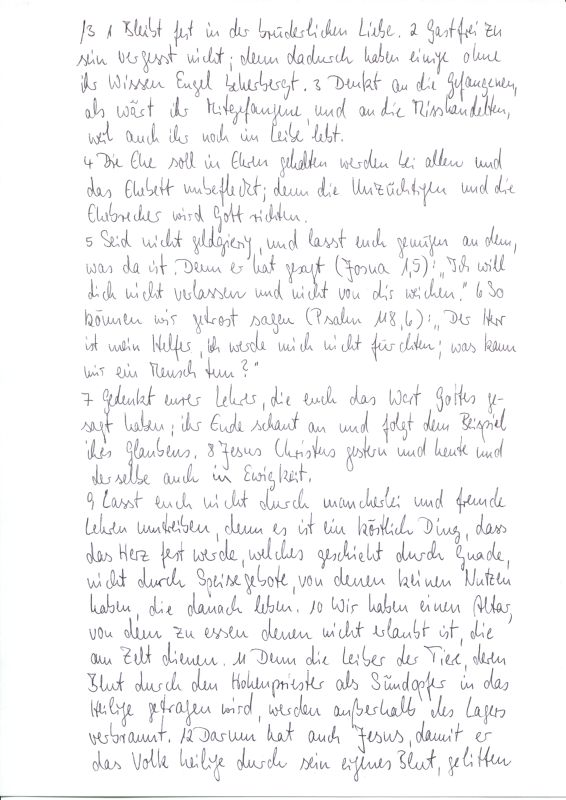 13 1 Bleibt fest in der brüderlichen Liebe. 2 Gastfrei zu
sein vergesst nicht; denn dadurch haben einige ohne
ihr Wissen Engel beherbergt. 3 Denkt an die Gefangenen,
als wärt ihr Mitgefangene, und an die Misshandelten,
weil auch ihr noch im Leibe lebt.
4 Die Ehe soll in Ehren gehalten werden bei allen und
das Ehebett unbefleckt; denn die Unzüchtigen und die
Ehebrecher wird Gott richten.
5 Seid nicht geldgierig, und lasst euch genügen an dem,
was da ist. Denn er hat gesagt (Josua 1,5): „Ich will
dich nicht verlassen und nicht von dir weichen." 6 So
können wir getrost sagen (Psalm 118,6): „Der Herr
ist mein Helfer, ich werde mich nicht fürchten; was kann
mir ein Mensch tun?"
7 Gedenkt eurer Lehrer, die euch das Wort Gottes ge-
sagt haben; ihr Ende schaut an und folgt dem Beispiel
ihres Glaubens. 8 Jesus Christus gestern und heute und
derselbe auch in Ewigkeit.
9 Lasst euch nicht durch mancherlei und fremde
Lehren umtreiben, denn es ist ein köstlich Ding, dass
das Herz fest werde, welches geschieht durch Gnade,
nicht durch Speisegebote, von denen keinen Nutzen
haben, die danach leben. 10 Wir haben einen Altar,
von dem zu essen denen nicht erlaubt ist, die
am Zelt dienen. 11 Denn die Leiber der Tiere, deren
Blut durch den Hohenpriester als Sündopfer in das
Heilige getragen wird, werden außerhalb des Lagers
verbrannt. 12 Darum hat auch Jesus, damit er
das Volk heilige durch sein eigenes Blut, gelitten